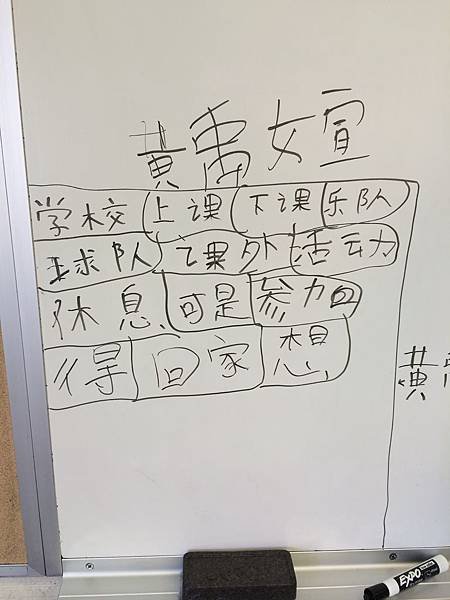 黄禹女宣
学校 上课 下课 乐队
球队 课外 活动
休息 可是 参加
得 回家 想
黄
EXPO